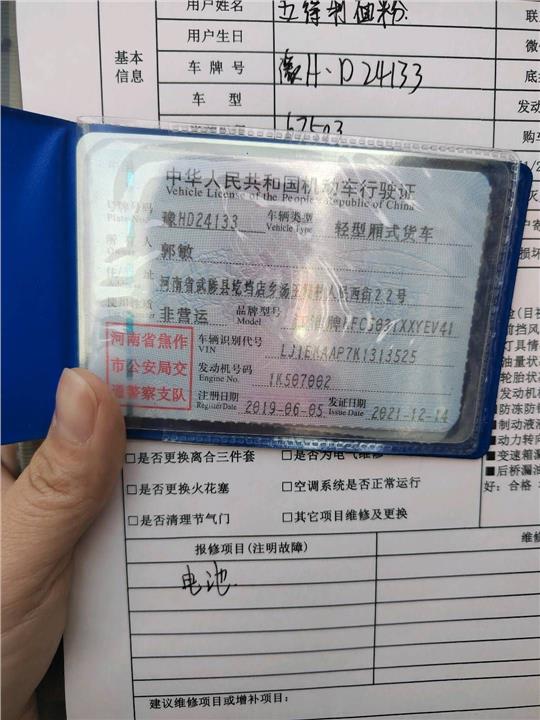 用户姓名
联
用户生日
微
基本
信息
车牌号
豫H·D24133
底
车 型
发动
67503
购车
中华人民共和国机动车行驶证
Vehicle License of the People's Republic of China
号牌号码
Plate No.
豫HD24133
车辆类型
Vehicle Type
轻型厢式货车
人
郭敏
址
河南省武陟县
人民西街22号
非营运
品牌型号
Model
河南省焦作
市公安局交
通警察支队
车辆识别代号
VIN
LJ1EKAAP7K1313525
发动机号码
Engine No.
1K507002
注册日期
Register Date
2019-06-05
发证日期
Issue Date
2021-12-14
损坏
检(目视
前挡风
灯具情
油量状
轮胎状态
发动机
■防冻防锈
■制动液液
■动力转向
■变速箱漏
■后桥漏油
好:合格
□是否更换离合三件套
□是否为电气维修
□是否更换火花塞
□空调系统是否正常运行
□是否清理节气门
□其它项目维修及更换
报修项目(注明故障)
维修
电池
建议维修项目或增补项目: